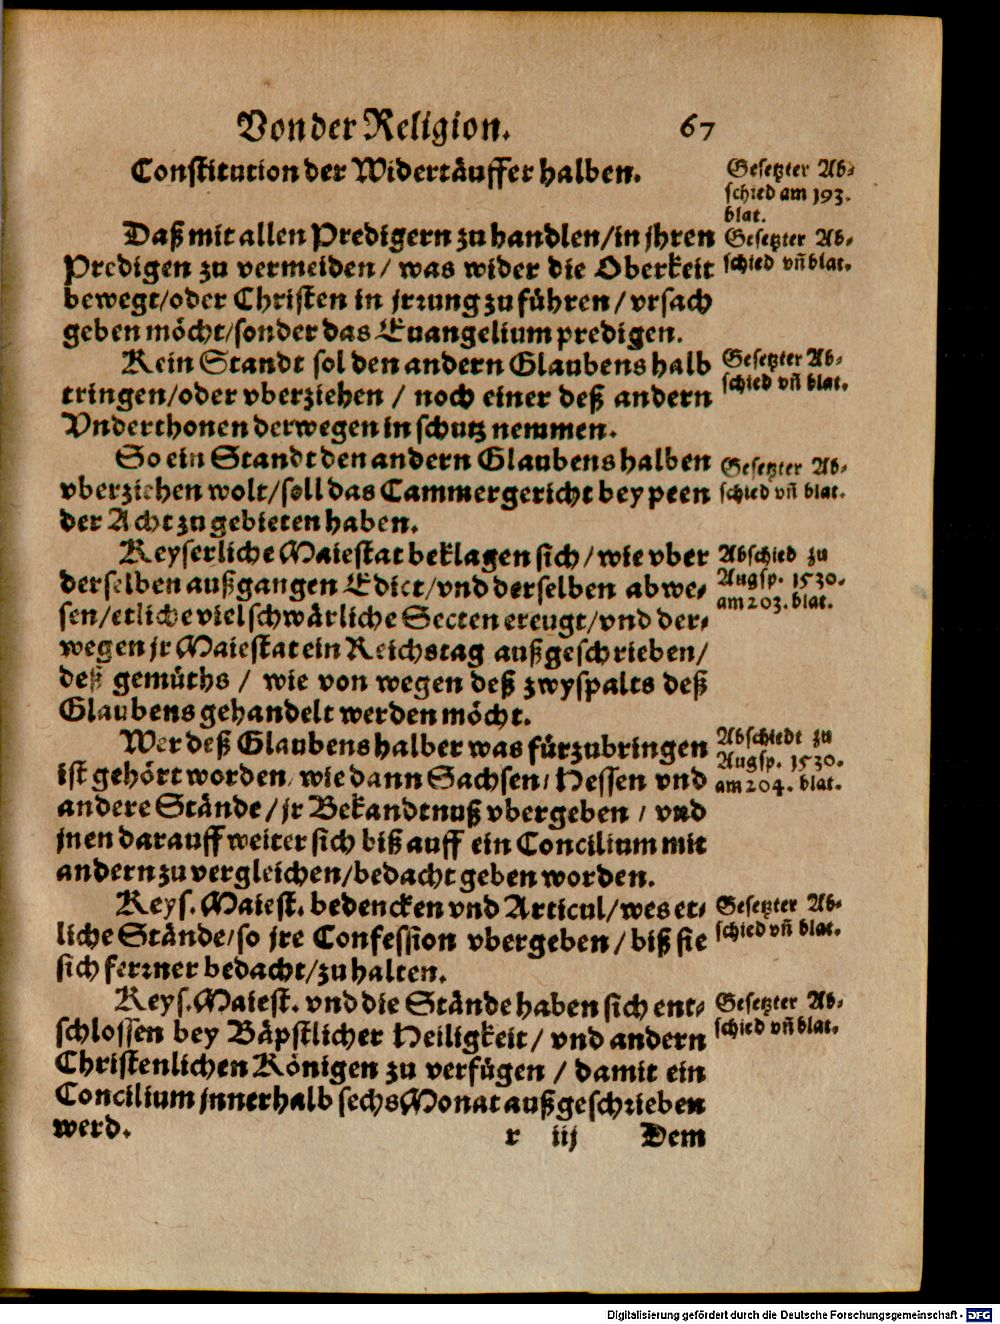 Von der Religion. 67
Constitution der Widertäuffer halben.
Gesetzter Ab-
schied am 193.
blat.
Daß mit allen Predigern zu handlen/in jhren
Predigen zu vermeiden/ was wider die Oberkeit
bewegt/oder Christen in jrrung zu führen/ vrsach
geben möcht/sonder das Euangelium predigen.
Gesetzter Ab-
schied vñ blat.
Kein Standt sol den andern Glaubens halb
tringen/oder vberziehen / noch einer deß andern
Vnderthonen derwegen in schutz nemmen.
Gesetzter Ab-
schied vñ blat.
So ein Standt den andern Glaubens halben
vberziehen wolt/soll das Cammergericht bey peen
der Acht zu gebieten haben.
Gesetzter Ab-
schied vñ blat.
Keyserliche Maiestat beklagen sich/ wie vber
derselben außgangen Edict/vnd derselben abwe-
sen/etliche viel schwärliche Secten ereugt/vnd der-
wegen jr Maiestat ein Reichstag außgeschrieben/
deß gemüths / wie von wegen deß zwyspalts deß
Glaubens gehandelt werden möcht.
Abschied zu
Augsp. 1530.
am 203. blat.
Wer deß Glaubens halber was fürzubringen
ist gehört worden/ wie dann Sachsen/ Hessen vnd
andere Stände/ jr Bekandtnuß vbergeben / vnd
jnen darauff weiter sich biß auff ein Concilium mit
andern zu vergleichen/bedacht geben worden.
Abschiedt zu
Augsp. 1530.
am 204. blat.
Keys. Maiest. bedencken vnd Articul/ wes et-
liche Stände/so jre Confession vbergeben/ biß sie
sich ferrner bedacht/zu halten.
Gesetzter Ab-
schied vñ blat.
Keys. Maiest. vnd die Stände haben sich ent-
schlossen bey Bäpstlicher Heiligkeit/ vnd andern
Christenlichen Königen zu verfügen / damit ein
Concilium jnnerhalb sechs Monat außgeschrieben
werd.
Gesetzter Ab-
schied vñ blat.
r iij Dem
Digitalisierung gefördert durch die Deutsche Forschungsgemeinschaft - DFG